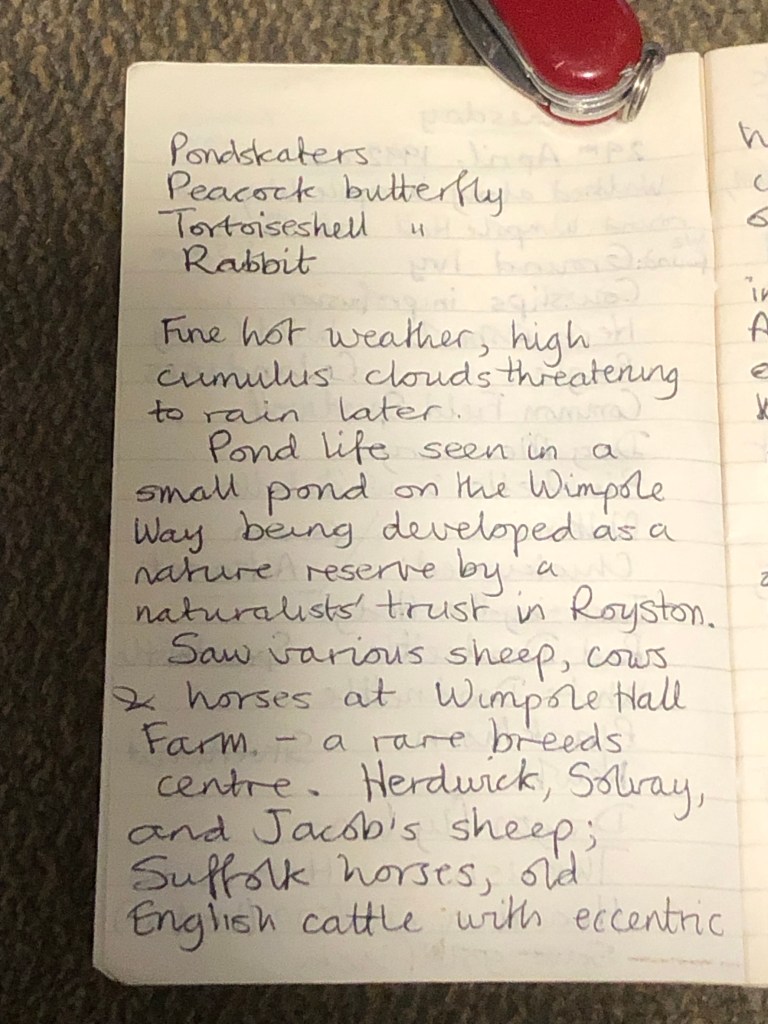 Pondskaters
Peacock butterfly
Tortoiseshell "
Rabbit
Fine hot weather, high
cumulus clouds threatening
to rain later.
Pond life seen in a
small pond on the Wimpole
Way being developed as a
nature reserve by a
naturalists' trust in Royston.
Saw various sheep, cows
& horses at Wimpole Hall
Farm. - a rare breeds
centre. Herdwick, Solway,
and Jacob's sheep;
Suffolk horses, old
English cattle with eccentric